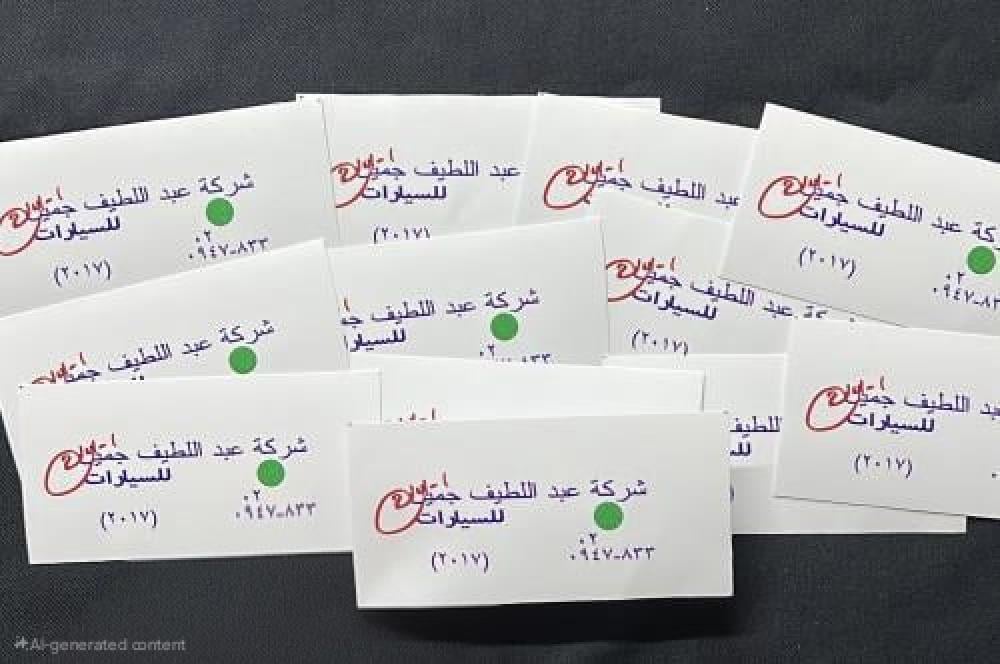 شركة عبد اللطيف جميل
للسيارات
٠٢
(٢٠١٧) ٠٩٤٧-٨٣٣
عبد اللطيف جميل
للسيارات
(٢٠١٧)
عبد اللطيف جميل
عبد اللطيف جميل
للسيارات
(٢٠١٧)
شركة عبد اللطيف
شركة عبد اللطيف
للسيارات
٠٢
عبد اللطيف جميل
للسيارات
(٢٠١٧)
اللطيف جميل
للسيارات
(٢٠١٧)
شركة عبد اللطيف جميل
للسيارات
٠٢
(٢٠١٧) ٠٩٤٧-٨٣٣
شركة عبد اللطيف جميل
للسيارات
٠٢
(٢٠١٧) ٠٩٤٧-٨٣٣
AI-generated content